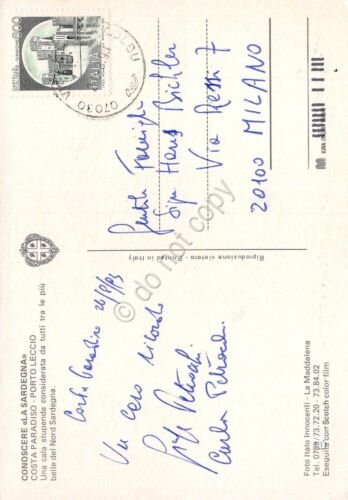 CONOSCERE «LA SARDEGNA»
COSTA PARADISO - PORTO LECCIO
Una cala stupenda considerata da tutti tra le più
belle del Nord Sardegna.
Costa Paradiso 26/8/93
Un caro ricordo
Carla
Foto Italo Innocenti - La Maddalena
Tel. 0789/73.72.20 - 73.84.02
Eseguita con Scotch color film
Riproduzione vietata - Printed in Italy
600
ITALIA
07030
Gentile Famiglia
Sign. Hans Bichler
Via Ressi 7
20100 MILANO
© do not copy